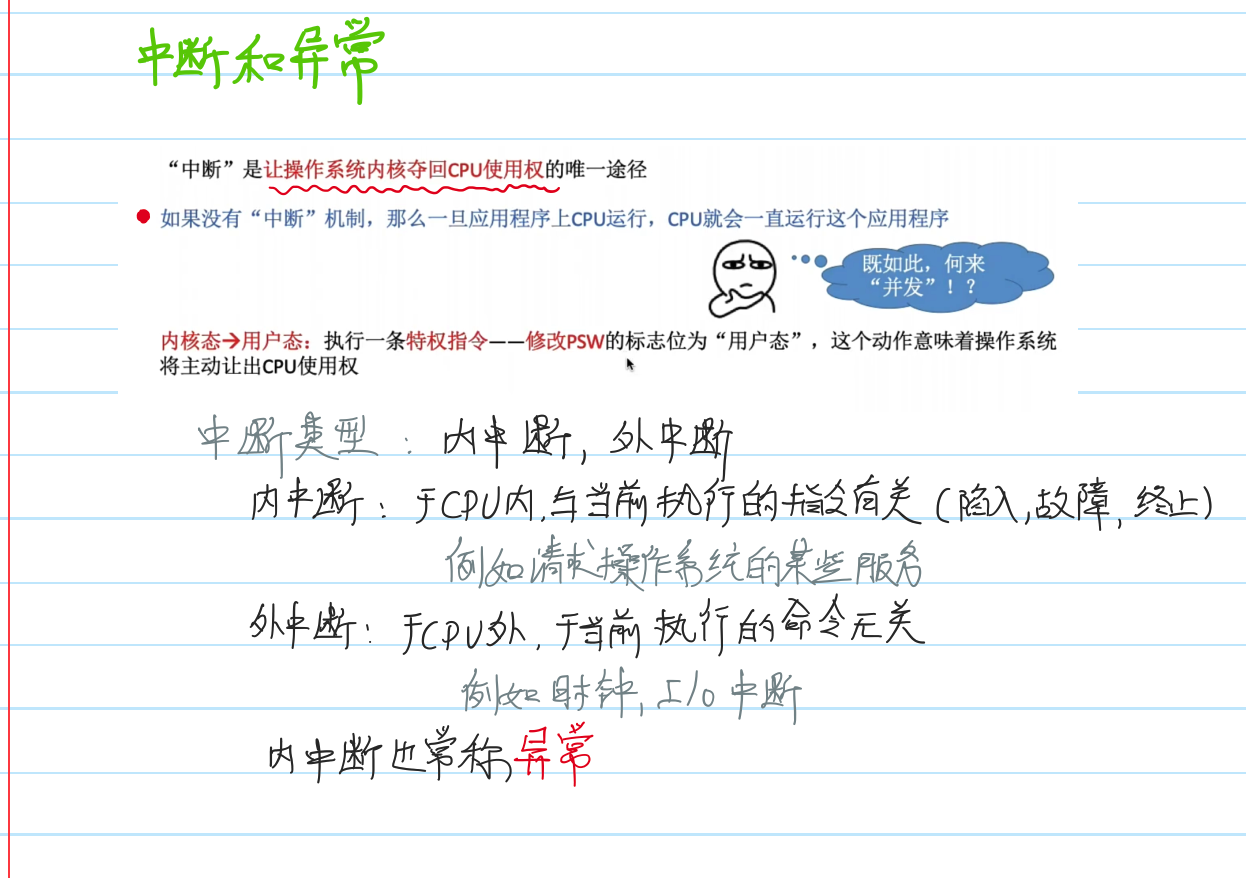 中断和异常
“中断”是让操作系统内核夺回CPU使用权的唯一途径
如果没有“中断”机制，那么一旦应用程序上CPU运行，CPU就会一直运行这个应用程序
既如此，何来
“并发”！？
内核态→用户态：执行一条特权指令——修改PSW的标志位为“用户态”，这个动作意味着操作系统
将主动让出CPU使用权
中断类型：内中断，外中断
内中断：于CPU内，与当前执行的指令有关（陷入，故障，终止）
例如请求操作系统的某些服务
外中断：于CPU外，于当前执行的命令无关
例如时钟，I/O中断
内中断也常称异常